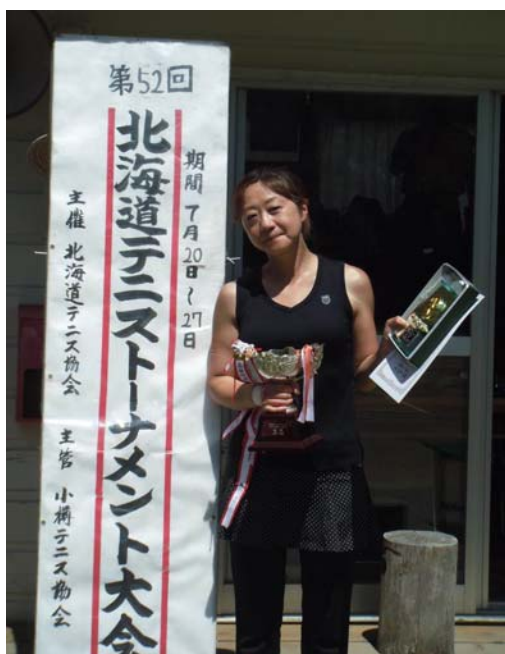 第52回
期間 7月20日～27日
北海道テニストーナメント大会
主催 北海道テニス協会
主管 小樽テニス協会